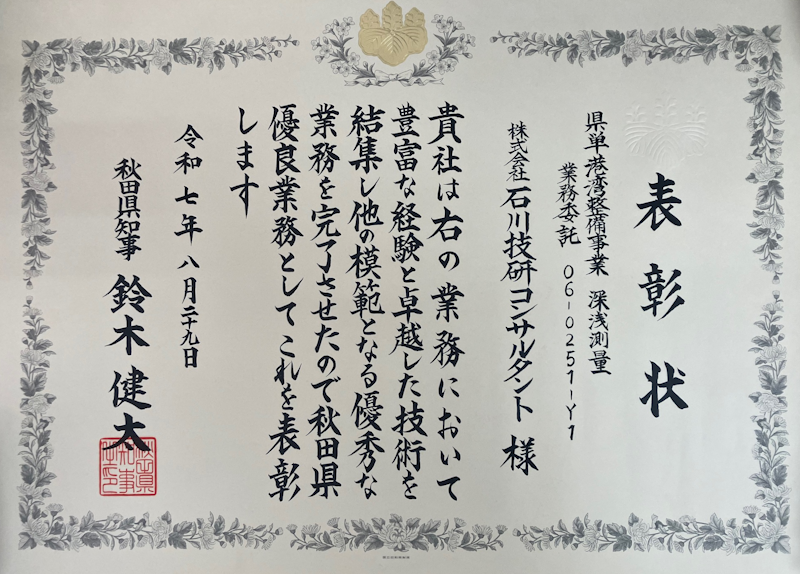 表彰状
県単港湾整備事業 深浅測量
業務委託 06-0251-Y1
株式会社 石川技研コンサルタント 様
貴社は右の業務において
豊富な経験と卓越した技術を
結集し他の模範となる優秀な
業務を完了させたので秋田県
優良業務としてこれを表彰
します
令和七年八月二十九日
秋田県知事 鈴木健太
秋田県知事之印